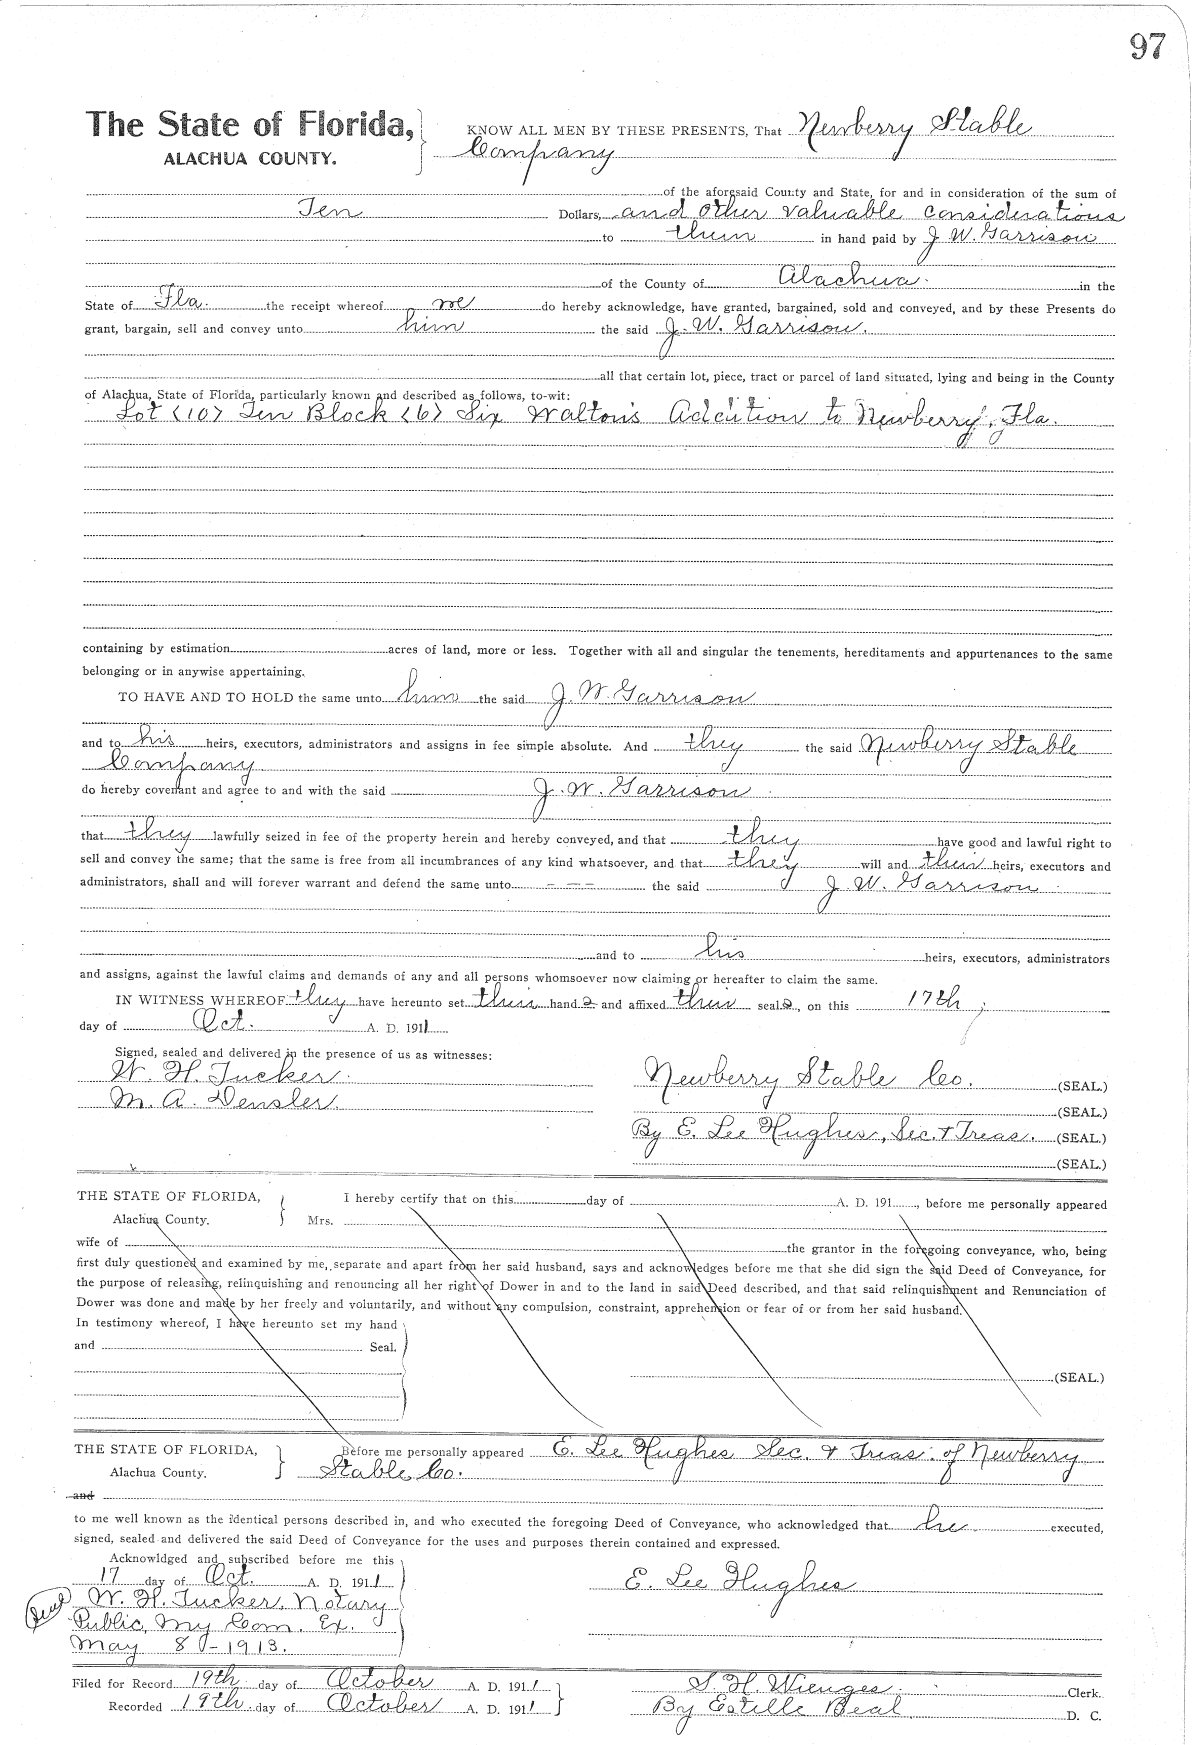 97
The State of Florida,
ALACHUA COUNTY.
KNOW ALL MEN BY THESE PRESENTS, That Newberry Stable
Company
of the aforesaid County and State, for and in consideration of the sum of
Ten Dollars, and other valuable considerations
to them in hand paid by J. W. Garrison
of the County of Alachua in the
State of Fla. the receipt whereof we do hereby acknowledge, have granted, bargained, sold and conveyed, and by these Presents do
grant, bargain, sell and convey unto him the said J. W. Garrison.
all that certain lot, piece, tract or parcel of land situated, lying and being in the County
of Alachua, State of Florida, particularly known and described as follows, to-wit:
Lot (10) Ten Block (6) Six Walton's Addition to Newberry, Fla.
containing by estimation acres of land, more or less. Together with all and singular the tenements, hereditaments and appurtenances to the same
belonging or in anywise appertaining.
TO HAVE AND TO HOLD the same unto him the said J. W. Garrison
and to his heirs, executors, administrators and assigns in fee simple absolute. And they the said Newberry Stable
Company
do hereby covenant and agree to and with the said J. W. Garrison
that they lawfully seized in fee of the property herein and hereby conveyed, and that they have good and lawful right to
sell and convey the same; that the same is free from all incumbrances of any kind whatsoever, and that they will and their heirs, executors and
administrators, shall and will forever warrant and defend the same unto - - - the said J. W. Garrison
and to his heirs, executors, administrators
and assigns, against the lawful claims and demands of any and all persons whomsoever now claiming or hereafter to claim the same.
IN WITNESS WHEREOF they have hereunto set their hand s and affixed their seal s, on this 17th
day of Oct. A. D. 1911
Signed, sealed and delivered in the presence of us as witnesses:
W. H. Tucker.
M. A. Densler.
Newberry Stable Co. (SEAL.)
(SEAL.)
By E. Lee Hughes, Sec. & Treas. (SEAL.)
(SEAL.)
THE STATE OF FLORIDA,
Alachua County.
I hereby certify that on this day of A. D. 191 , before me personally appeared
Mrs.
wife of the grantor in the foregoing conveyance, who, being
first duly questioned and examined by me, separate and apart from her said husband, says and acknowledges before me that she did sign the said Deed of Conveyance, for
the purpose of releasing, relinquishing and renouncing all her right of Dower in and to the land in said Deed described, and that said relinquishment and Renunciation of
Dower was done and made by her freely and voluntarily, and without any compulsion, constraint, apprehension or fear of or from her said husband.
In testimony whereof, I have hereunto set my hand
and Seal.
(SEAL.)
THE STATE OF FLORIDA,
Alachua County.
Before me personally appeared E. Lee Hughes Sec. & Treas. of Newberry
Stable Co.
and
to me well known as the identical persons described in, and who executed the foregoing Deed of Conveyance, who acknowledged that he executed,
signed, sealed and delivered the said Deed of Conveyance for the uses and purposes therein contained and expressed.
Acknowldged and subscribed before me this
17 day of Oct. A. D. 1911
W. H. Tucker, Notary
Public, My Com. Ex.
May 8 - 1913.
Seal
E. Lee Hughes
Filed for Record 19th day of October A. D. 1911
Recorded 19th day of October A. D. 1911
S. H. Wienges Clerk.
By Estille Beal D. C.